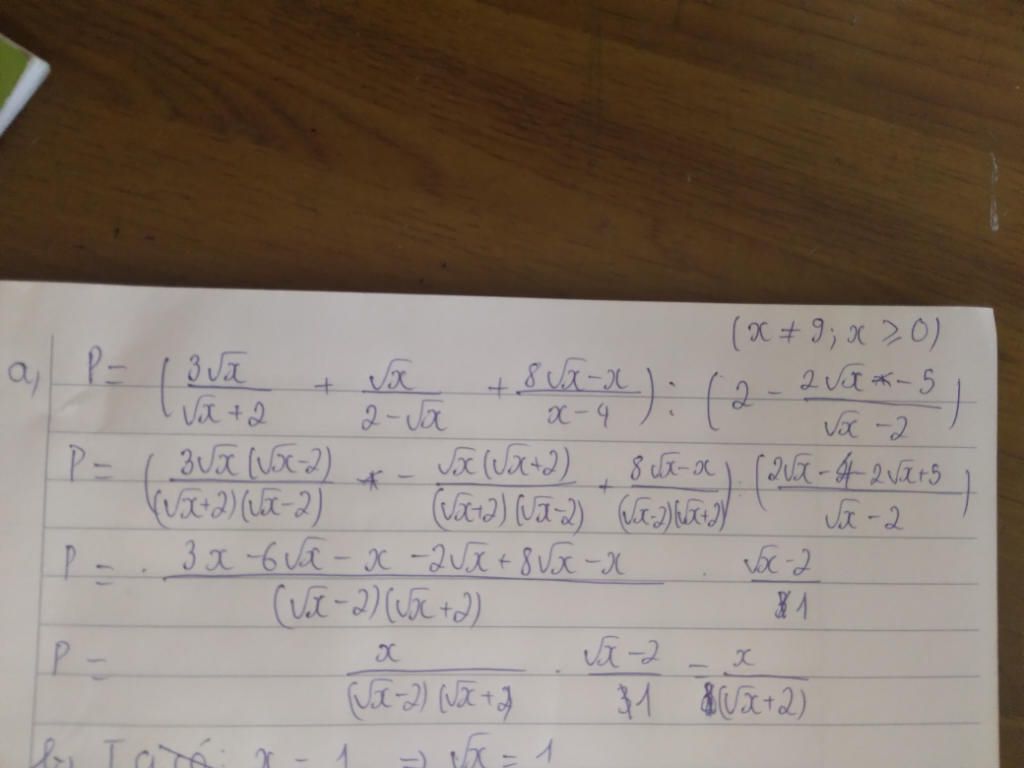 (x ≠ 9; x ≥ 0)
a, P = (3√x/(√x + 2) + √x/(2 - √x) + (8√x - x)/(x - 4)) : (2 - (2√x - 5)/(√x - 2))
P = (3√x(√x-2)/((√x+2)(√x-2)) - √x(√x+2)/((√x+2)(√x-2)) + (8√x-x)/((√x-2)(√x+2))) : ((2√x - 4 - 2√x+5)/(√x - 2))
P = (3x - 6√x - x - 2√x + 8√x - x)/((√x - 2)(√x + 2)) . (√x - 2)/1
P = x/((√x-2)(√x+2)) . (√x - 2)/1 = x/(√x+2)
b, Ta có: x = 1 ⇒ √x = 1